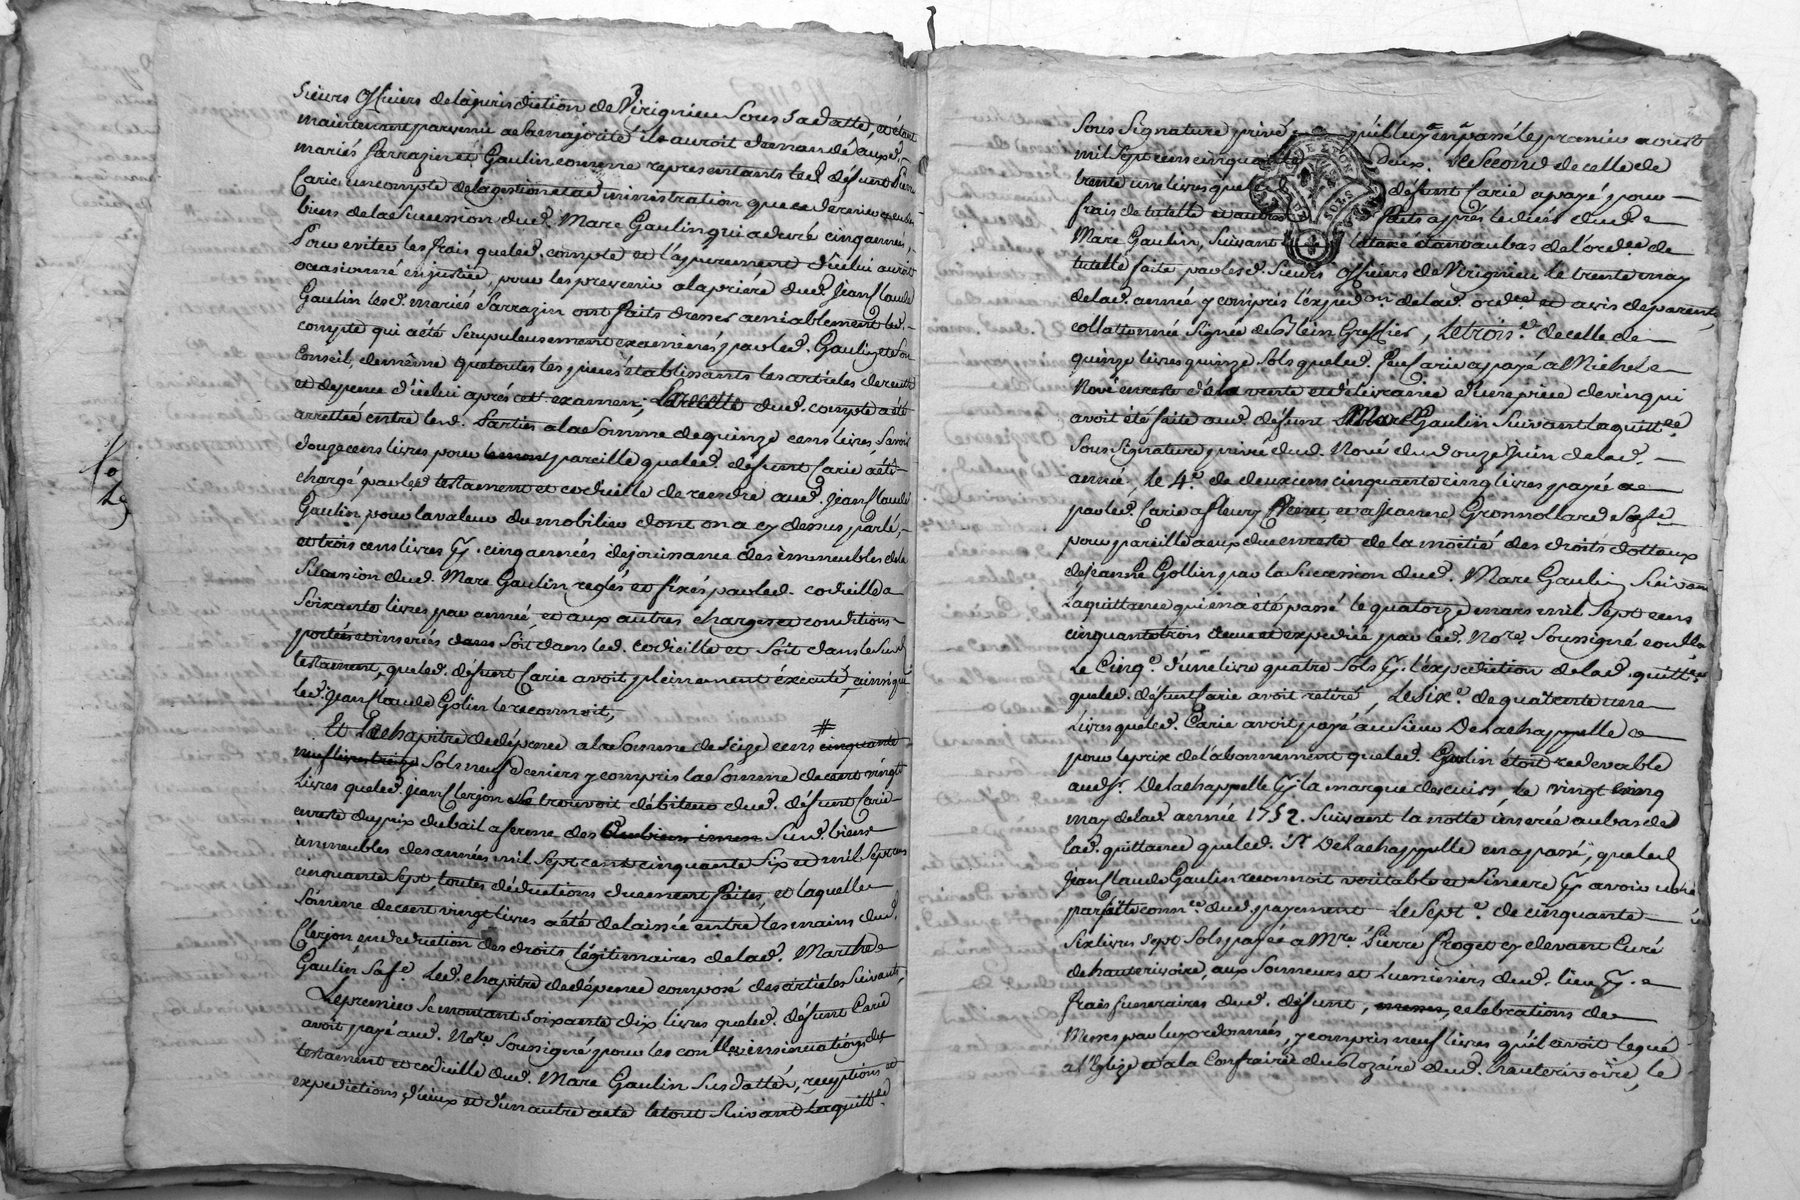 sieurs officiers de la jurisdiction de Virignieu sous sa datte, et étant
maintenant parvenu a sa majorité il auroit demandé auxd.
mariés Sarrazin et Gaulin comme representants led. défunt
Carie un compte de la gestion et administration que ce dernier a eu des
biens de la succession dud. Marc Gaulin qui a duré cinq années,
Pour eviter les frais que led. compte et l'apurement d'icelui auroit
occasionné en justice, pour les prevenir a la prière dud. Jean Claude
Gaulin lesd. mariés Sarrazin ont faits dresser amiablement led.
compte qui a été scrupuleusement examiné par led. Gaulin et son
Conseil, de même que toutes les pieces établissants les articles de recette
et depence d'icelui après cet examen, La recette dud. compte a été
arrettée entre lesd. Parties a la somme de quinze cens livres, Savoir
douze cens livres pour pareille que led. défunt Carie a été
chargé par les testament et codicille de rendre aud. Jean Claude
Gaulin pour la valeur du mobilier dont on a cy dessus parlé,
et trois cens livres p. cinq années de jouissance des immeubles de la
Succession dud. Marc Gaulin reglés et fixés par led. codicille a
Soixante livres par année, et aux autres charges et conditions
portées et inserées dans Soit dans led. codicille et Soit dans le Susd.
testament, que led. défunt Carie avoit pleinement éxécuté, ainsi que
led. Jean Claude Golin le reconnoit,
Et Le chapitre de dépence a la Somme de Seize cens # cinquante
neuf livres treize Sols neuf deniers y compris la Somme de cent vingt
Livres que led. Jean Clerjon Se trouvoit débiteur dud. défunt Carie
en reste du prix du bail a ferme des Susd. biens
immeubles des années mil Sept cent cinquante Six et mil Sept cens
cinquante Sept, toutes déductions duement faites, et laquelle
Somme de cent vingt livres a été delaissée entre les mains dud.
Clerjon en deduction des droits légitimaires de lad. Marthe
Gaulin Sa fe. Led. chapitre de dépence composé des articles Suivants,
Le premier Se montant Soixante dix livres que led. défunt Carie
avoit payé aud. Nore. Soussigné pour les conlles insinuations des
testament et codicille dud. Marc Gaulin Susdattés, receptions et
expeditions d'iceux et d'un autre acte le tout Suivant la quittce.
Sous Signature privé qu'il luy en a passé le premier aoust
mil Sept cens cinquante deux. Le Second de celle de
trente une livres que led. défunt Carie a payé pour
frais de tutelle et autres faits après le decès dud.
Marc Gaulin, Suivant la taxe étant au bas de l'ordce. de
tutelle faite par lesd. Sieurs officiers de Virignieu le trente may
de lad. année y compris l'expedon. de lad. ordce. et avis de parents,
collationnée Signée de Greffier, Le trois.e de celle de
quinze livres quinze Sols que led. feu Carie a payé a Michel
Nové en reste de la vente et delivrance d'une piece de vin qui
avoit été faite aud. défunt Marc Gaulin Suivant la quittce.
Sous Signature privée dud. Nové du onze Juin de lad.
année, Le 4.e de deux cens cinquante cinq livres payée
par led. Carie a fleury et a Jeanne Gronnollard Sa fe.
pour pareille a eux due en reste de la moitié des droits dotaux
de Jeanne Gollin par la Succession dud. Marc Gaulin Suivant
La quittance qui en a été passé le quatorze mars mil Sept cens
cinquante trois receue et expediée par led. Nore. Soussigné
Le Cinq.e d'une livre quatre Sols p. l'expedition de lad. quittce.
que led. défunt Carie avoit retiré, Le Six.e de quatante une
Livres que led. Carie avoit payé au Sieur Delachappelle
pour le prix de l'abonnement que led. Gaulin étoit redevable
aud. Sr. Delachappelle p. la marque des cuirs, le vingt cinq
may de lad. année 1752. Suivant la notte inserée au bas de
lad. quittance que led. Sr. Delachappelle en a passé, que led.
Jean Claude Gaulin reconnoit veritable et Sincere p. avoir
parfaite connce. dud. payement Le Sept.e de cinquante
Six livres Sept Sols payée a Mre. Pierre Froget cy devant Curé
de hauterivoire, aux Sonneurs et Luminiers dud. lieu p.
frais funeraires dud. défunt, celebrations de
Messes par luy ordonnées, y compris neuf livres qu'il avoit legué
a l'Eglize et a la Confrairie du Rozaire dud. hauterivoire, Le